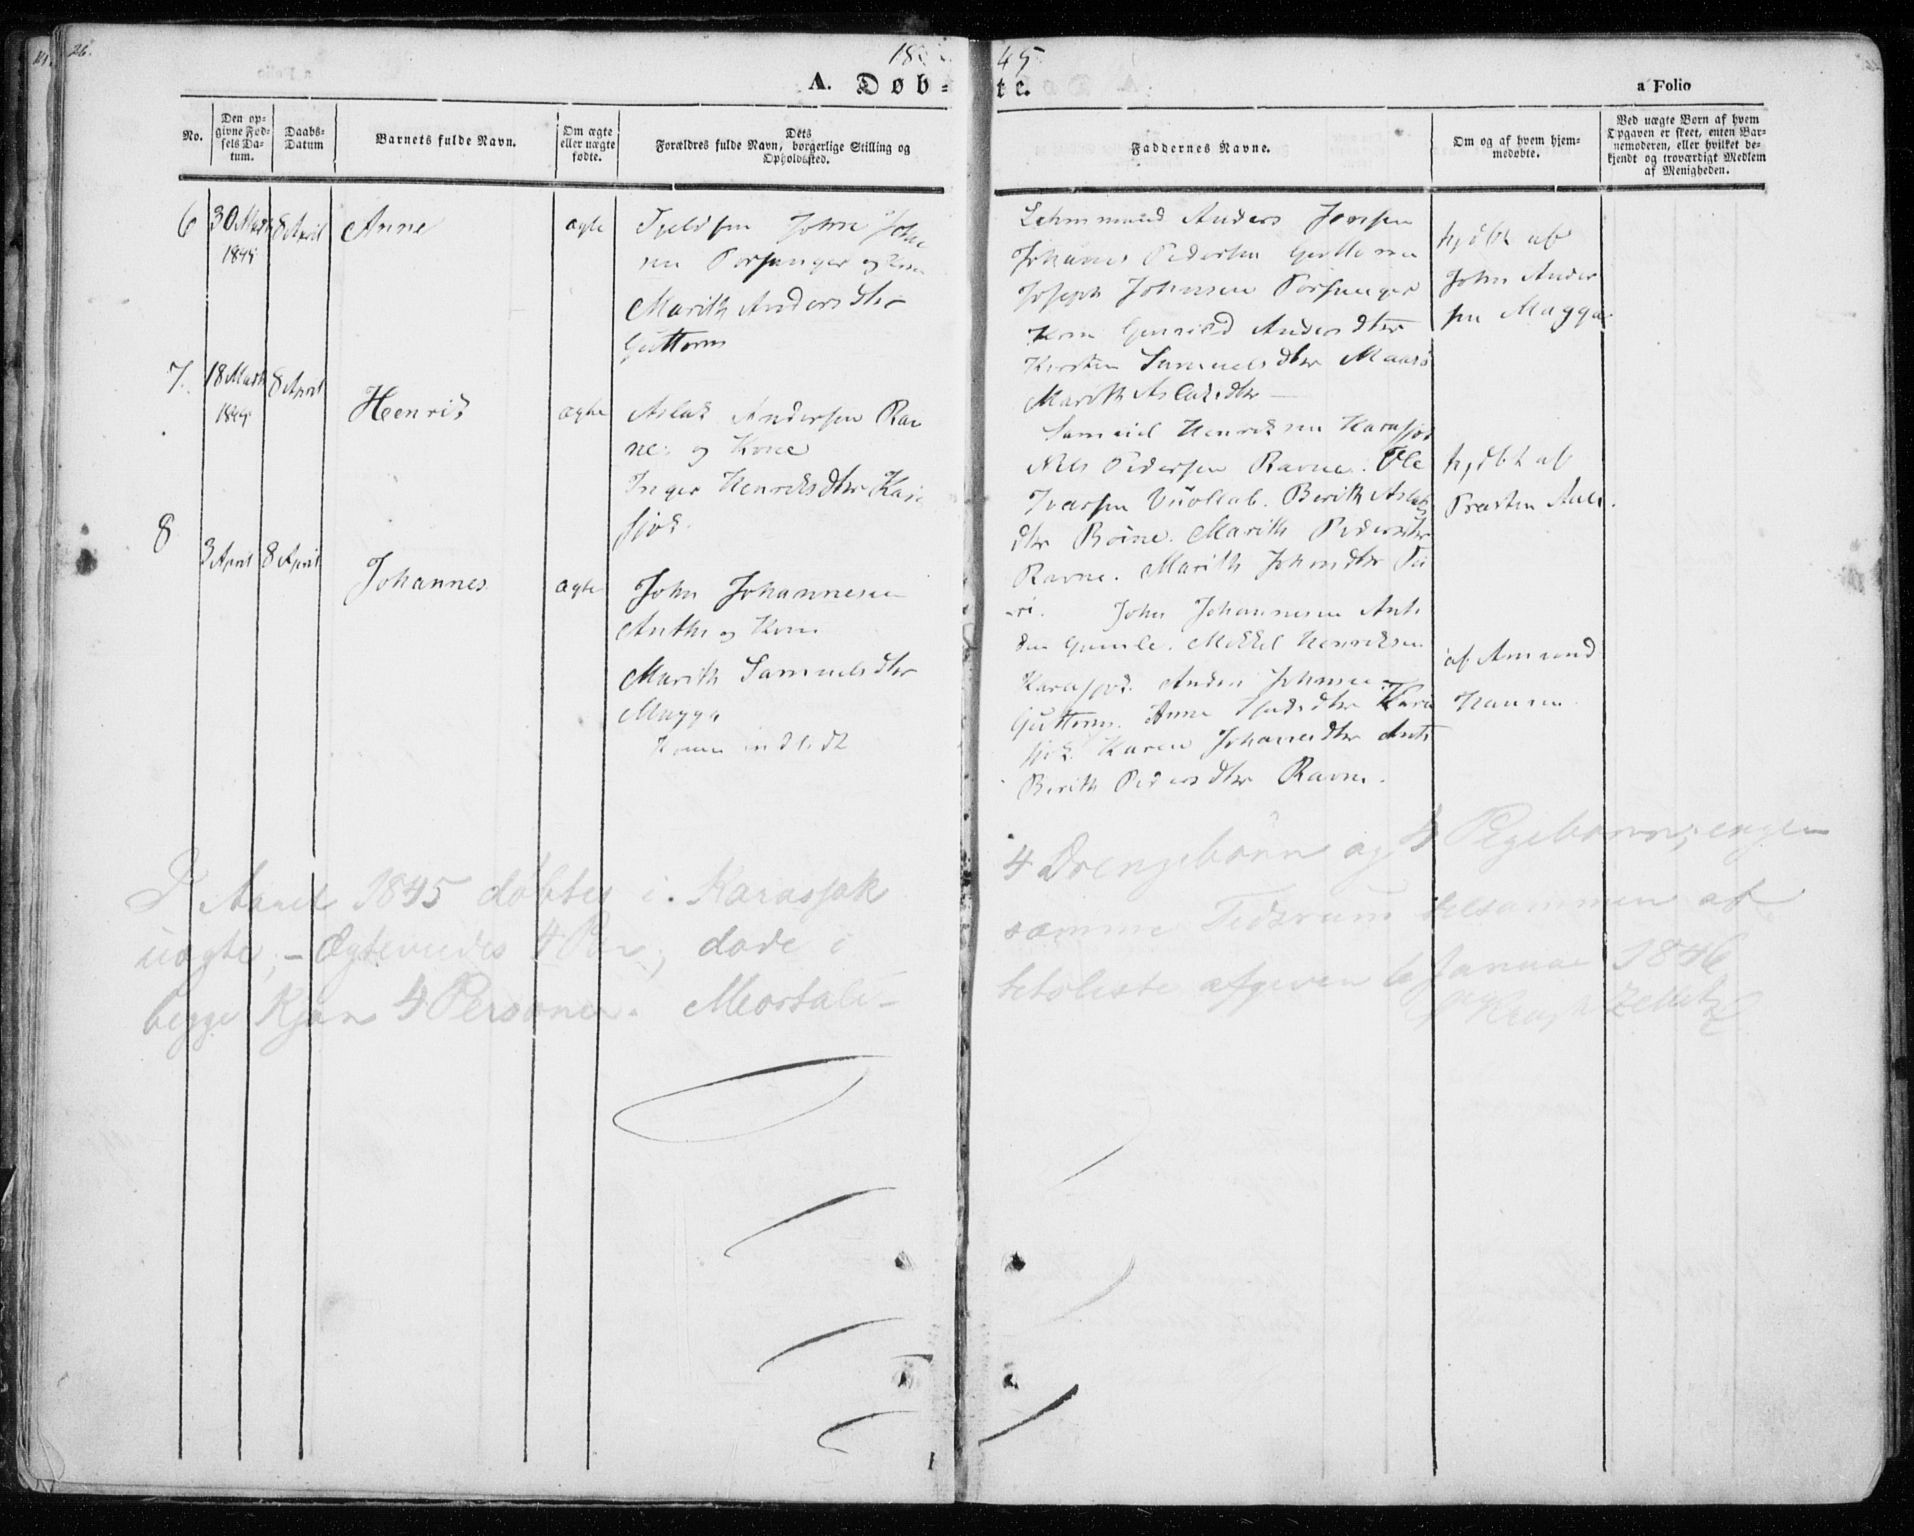 26.
1845
A. Døbte.
a Folio
No.
Den opgivne Fødsels Datum.
Daabs-Datum
Barnets fulde Navn.
Om ægte eller uægte fødte.
Dets Forældres fulde Navn, borgerlige Stilling og Opholdssted.
Faddernes Navne.
Om og af hvem hjemmedøbte.
Ved uægte Børn af hvem Opgaven er skeet, enten Barnemoderen, eller hvilket bekjendt og troværdigt Medlem af Menigheden.
6
30 Marts
1845
8 April
Anne
ægte
Fjeldfin John John
sen Porsanger og Kone
Marith Andersdtr
Guttorm
Lehnsmand Anders Jensen
Johannes Pedersen Guttorm
Joseph Johnsen Porsanger
Kone Gunild Andersdtr
Kirsten Samuelsdtr
Marith Aslaksdtr
hjdbt af
John Ander
sen Magga
7.
18 Marts
1845
8 April
Henrik
ægte
Aslak Andersen Rav
ne og Kone
Inger Henriksdtr Kara
sjok
Samuel Henriksen Karasjok
Nils Pedersen Ravne. Ole
Iversen Vuollab. Berith Aslaks
dtr Boine. Marith Pedersdtr
Ravne. Marith Johnsdtr
hjdbt af
Præsten
8
3 April
8 April
Johannes
ægte
John Johannesen
Anthi og Kone
Marith Samuelsdtr
Magga
Konen indledt
John Johannesen Anti
den Gamle. Mikkel Henriksen
Karasjok. Anders Johnsen
Guttorm. Anne dtr Kara
sjok. Karen Johannesdtr Anti
Berith Pedersdtr Ravne.
af Amund
Hansen
I Aaret 1845 døbtes i Karasjok 4 Drengebørn og 4 Pigebørn; ingen
uægte, - Ægteviedes 4 Par; døde i samme Tidsrum tilsammen af
begge Kjøn 4 Personer. Mortali-tetsliste afgiven 6 Januar 1846
Zetlitz